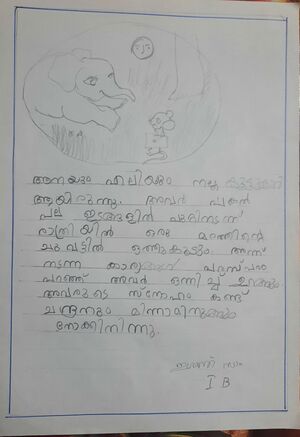 ആനയും എലിയും നല്ല കൂട്ടുകാർ
ആയിരുന്നു. അവർ പകൽ
പല ഇടങ്ങളിൽ ചുറ്റിനടന്ന്
രാത്രിയിൽ ഒരു മരത്തിന്റെ
ചുവട്ടിൽ ഒത്തുകൂടും. അന്ന്
നടന്ന കാര്യങ്ങൾ പരസ്പരം
പറഞ്ഞ് അവർ ഒന്നിച്ച് ഉറങ്ങും
അവരുടെ സ്നേഹം കണ്ട്
ചന്ദ്രനും മിന്നാമിനുങ്ങും
നോക്കിനിന്നു.
I B